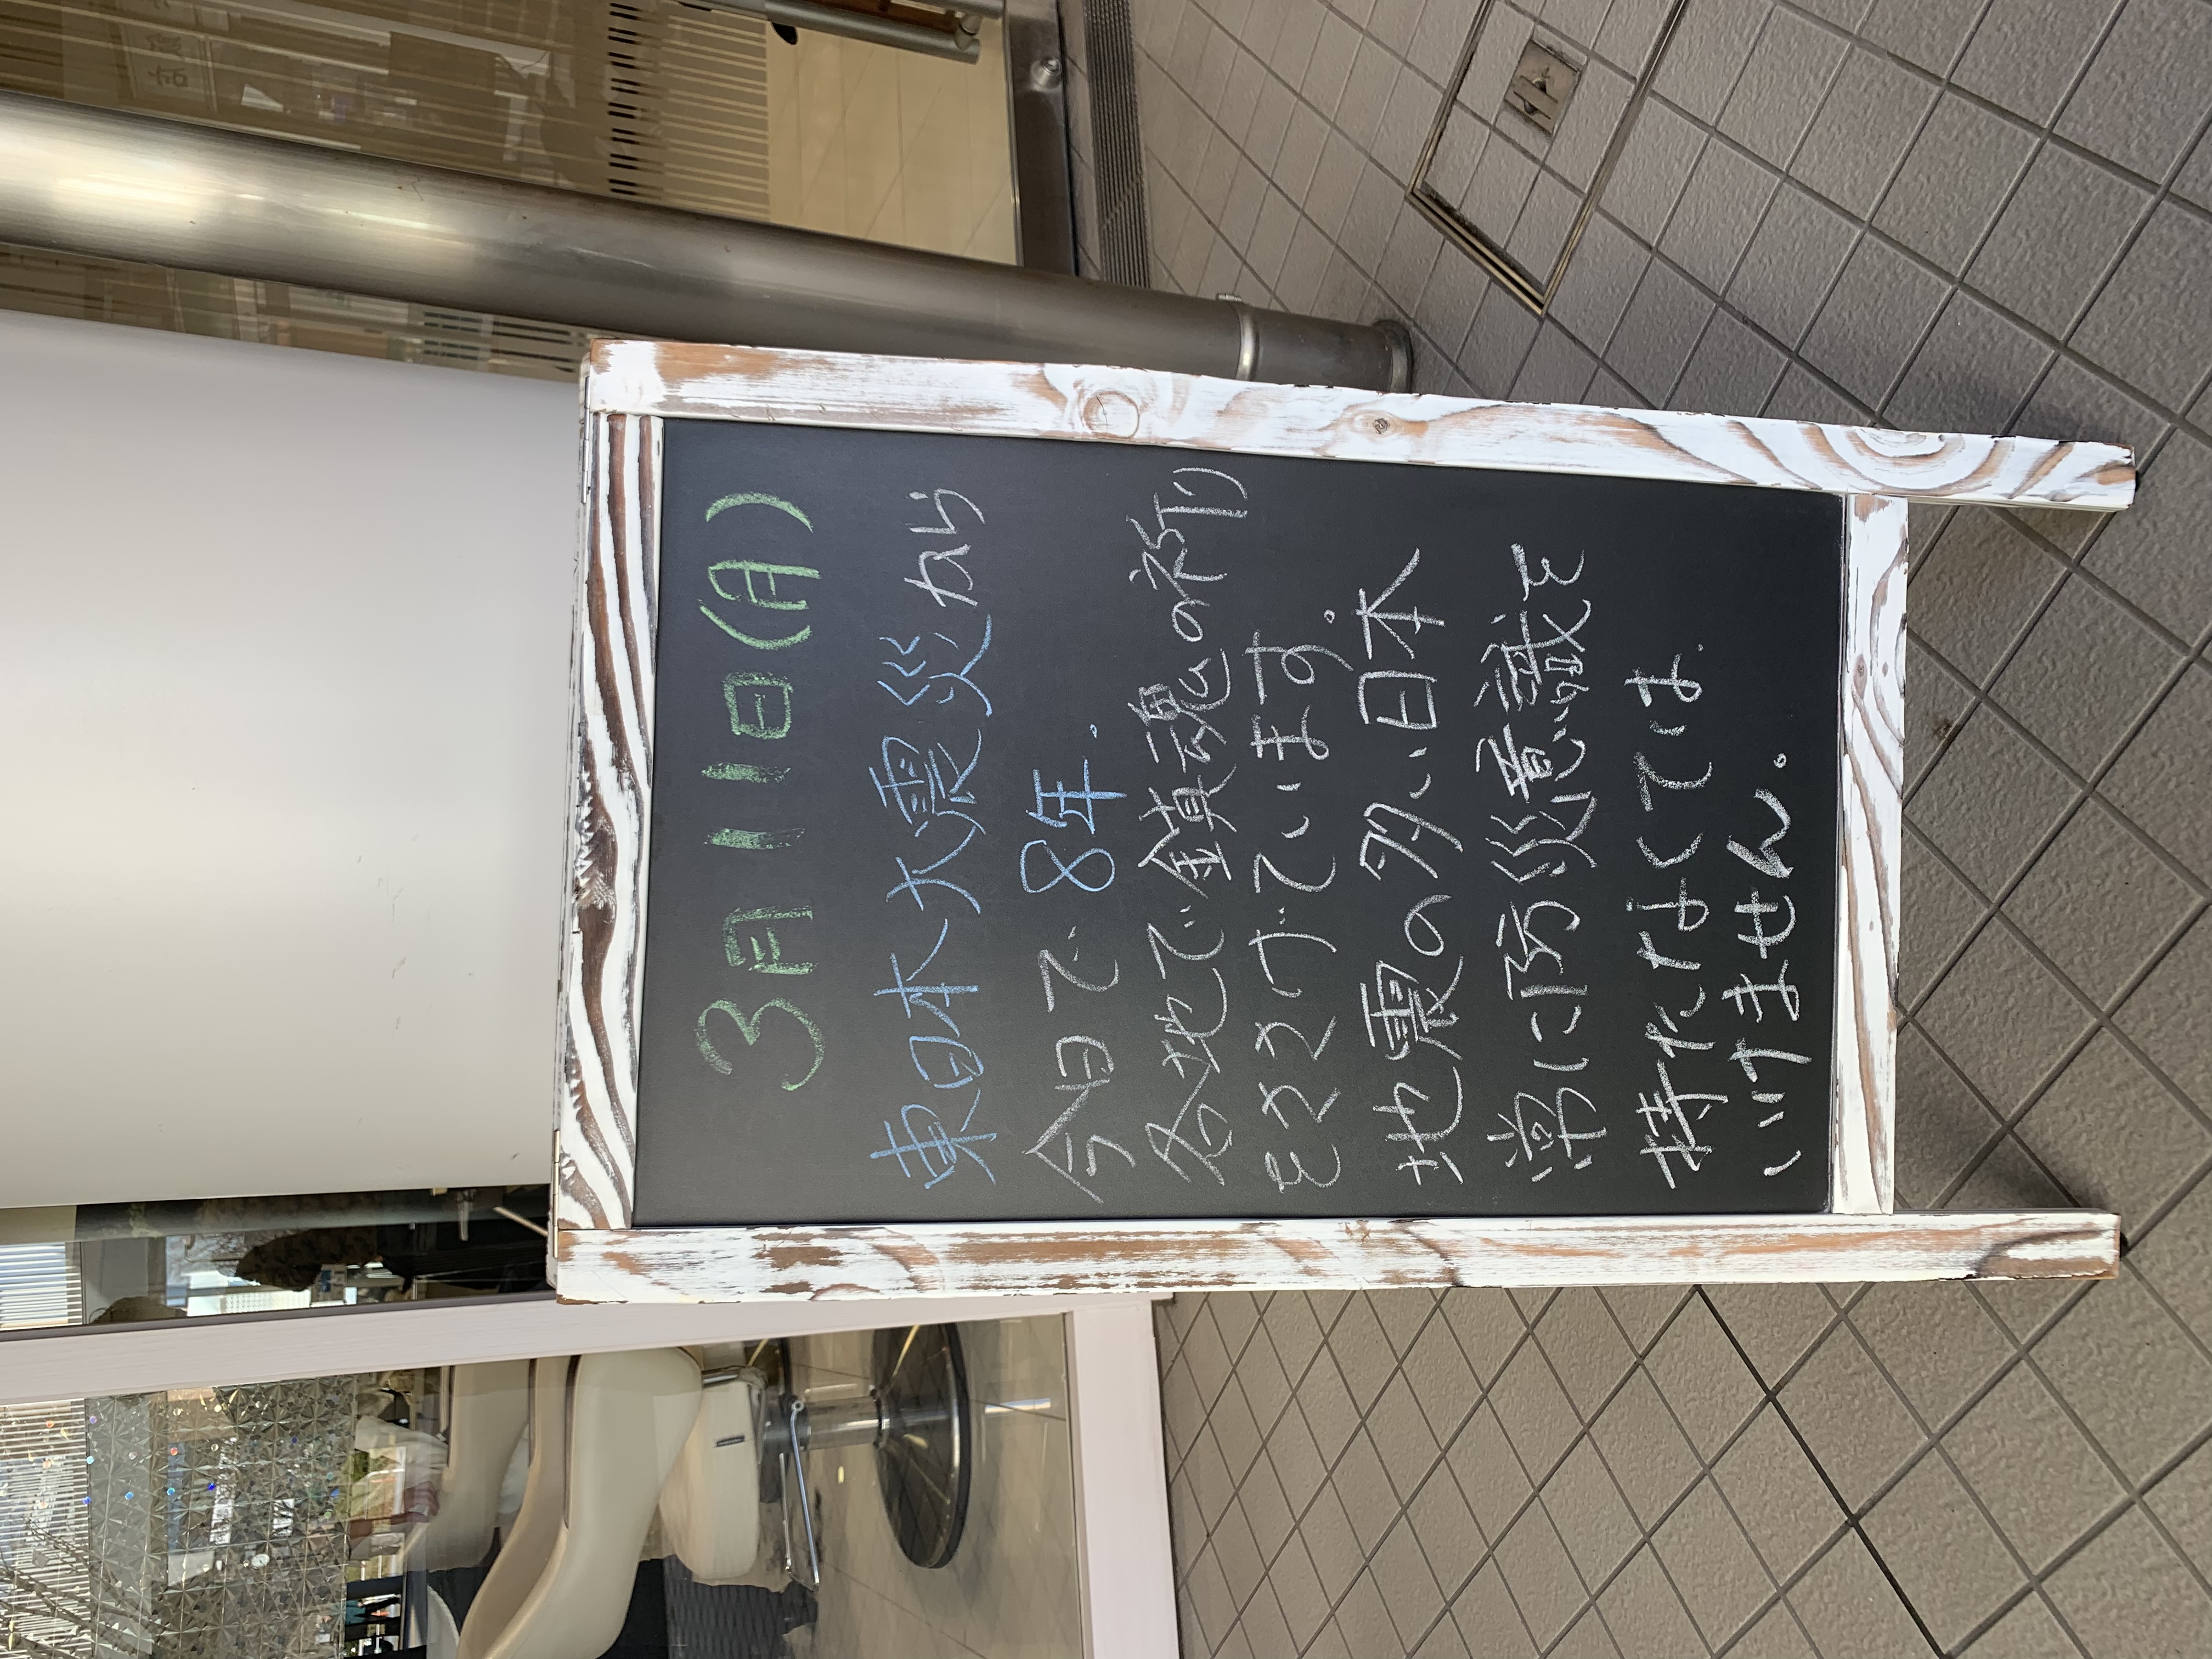 3月11日(月)
東日本大震災から
今日で8年.
各地で鎮魂の祈り
をささげています.
地震の多い日本
常に防災意識を
持たなくては.
いけません。